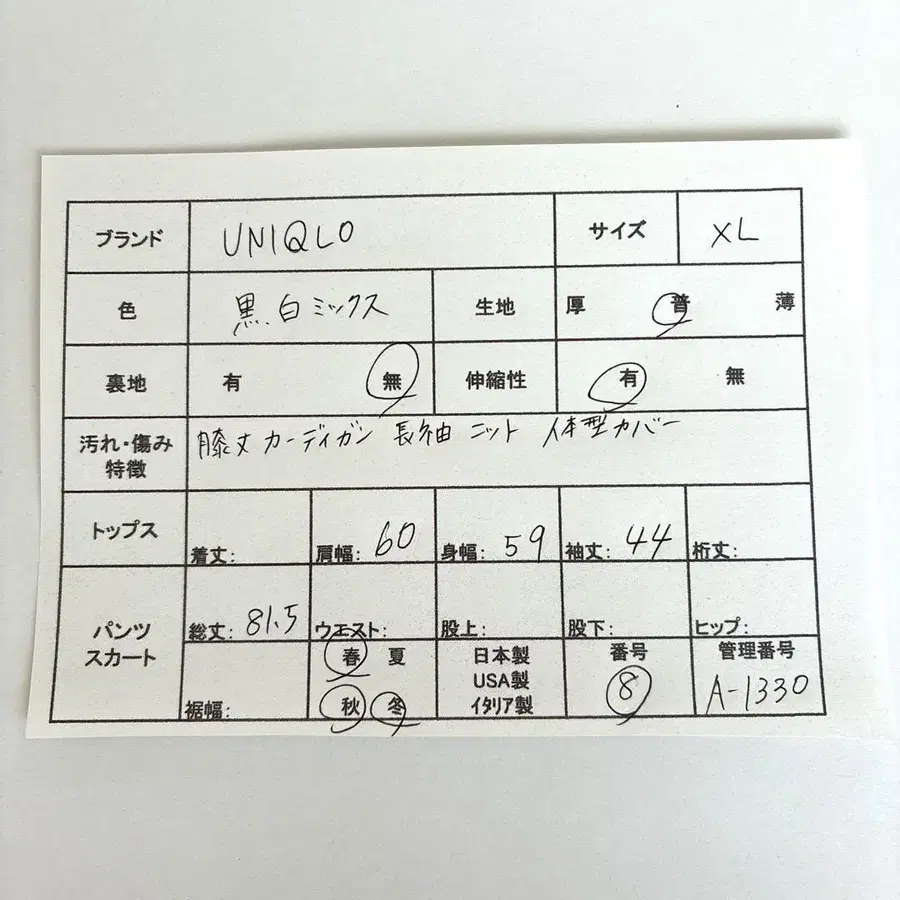 ブランド UNIQLO サイズ XL
色 黒、白ミックス 生地 厚 普 薄
裏地 有 無 伸縮性 有 無
汚れ・傷み
特徴
膝丈 カーディガン 長袖 ニット 体型カバー
トップス 着丈: 肩幅: 60 身幅: 59 袖丈: 44 裄丈:
パンツ
スカート
総丈: 81.5 ウエスト: 股上: 股下: ヒップ:
裾幅:
春 夏
秋 冬
日本製
USA製
イタリア製
番号
8
管理番号
A-1330